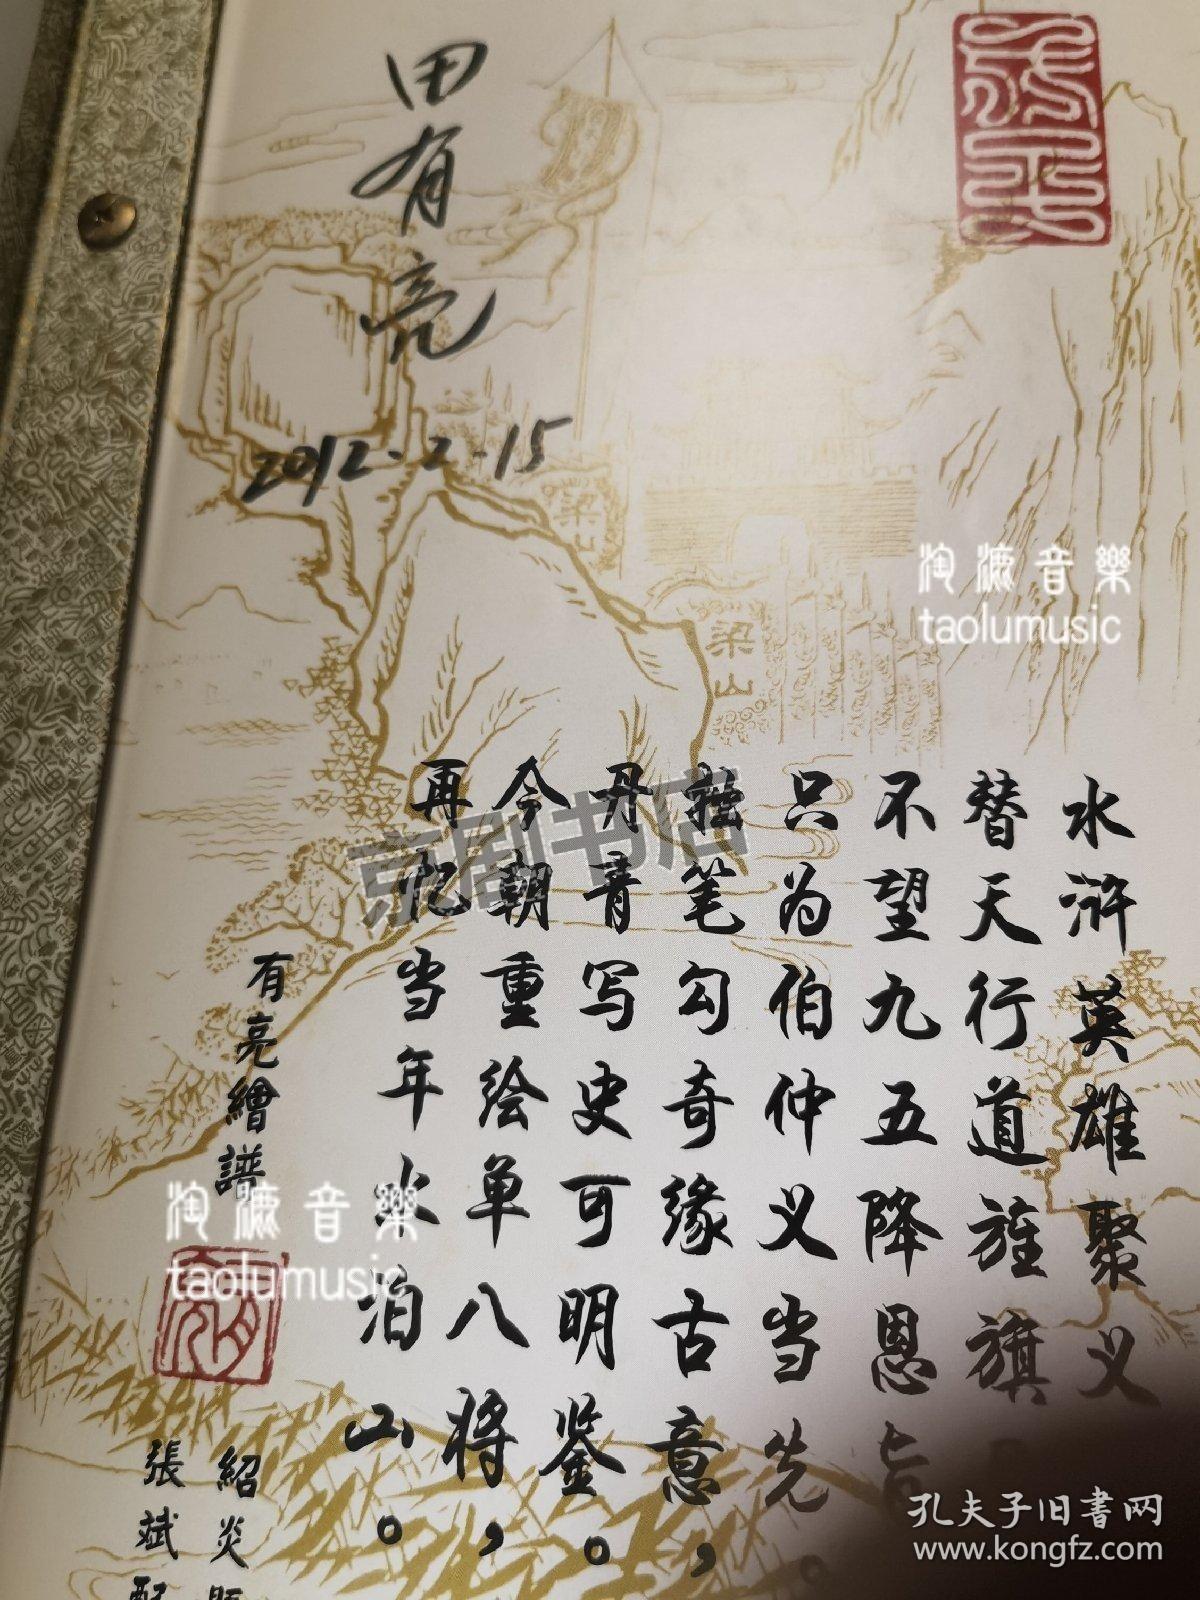 田有亮
2012.2.15
梁山
梁山
水浒英雄聚义
替天行道旌旗
不望九五降恩旨
只为伯仲义当先。
拙笔勾奇缘古意，
丹青写史可明鉴。
今朝重绘单八将，
再忆当年水泊山。
有亮繪譜
紹炎
張斌配
淘漉音樂
taolumusic
淘漉音樂
taolumusic
京剧书店
孔夫子旧书网
www.kongfz.com